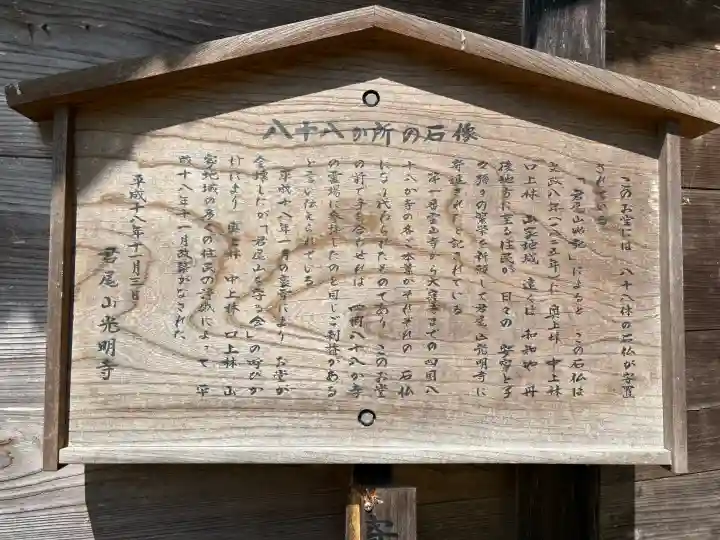 八十八か所の石像
このお堂には、八十八体の石仏が安置
されている
「君尾山略記」によると、この石仏は
文政八年(一八二五年)に 奥上林 中上林
口上林 山家地域 遠くは 和知や 丹
後地方に至る住民が 日々の 安寧と子
々孫々の繁栄を祈願して君尾山光明寺に
寄進されたと記されている
第一番霊山寺から大窪寺までの四国八
十八か寺の各ご本尊がそれぞれの 石仏
になり代わられたものであり このお堂
の前で手を合わせれば 四国八十八か寺
の霊場に参拝したのと同じご利益がある
と言い伝えられている
平成十八年一月の豪雪により お堂が
全壊したが「君尾山を守る会」の呼びか
けにより 奥上林 中上林 口上林 山
家地域の多くの住民の浄財によって 平
成十八年十一月改築がなされた
平成十八年十一月三日
君尾山光明寺